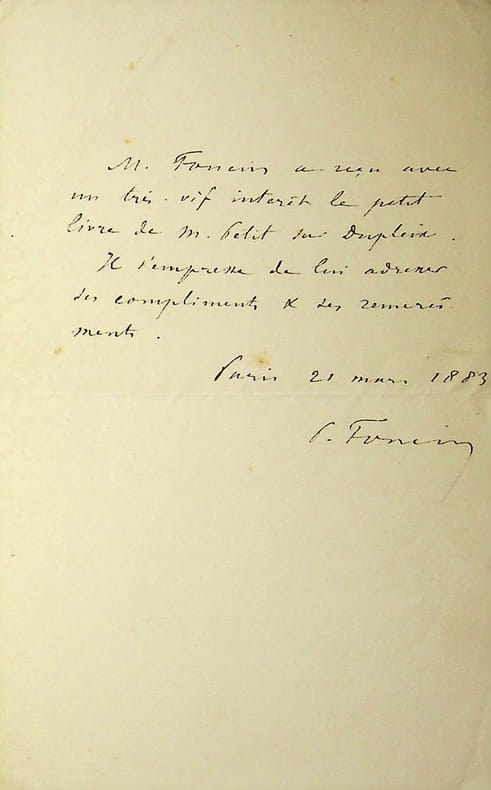 M. Foncin a reçu avec
un très vif intérêt le petit
livre de M. Petit sur Dupleix.
Il s'empresse de lui adresser
ses compliments & ses remercî-
ments.
Paris 21 mars 1883
P. Foncin